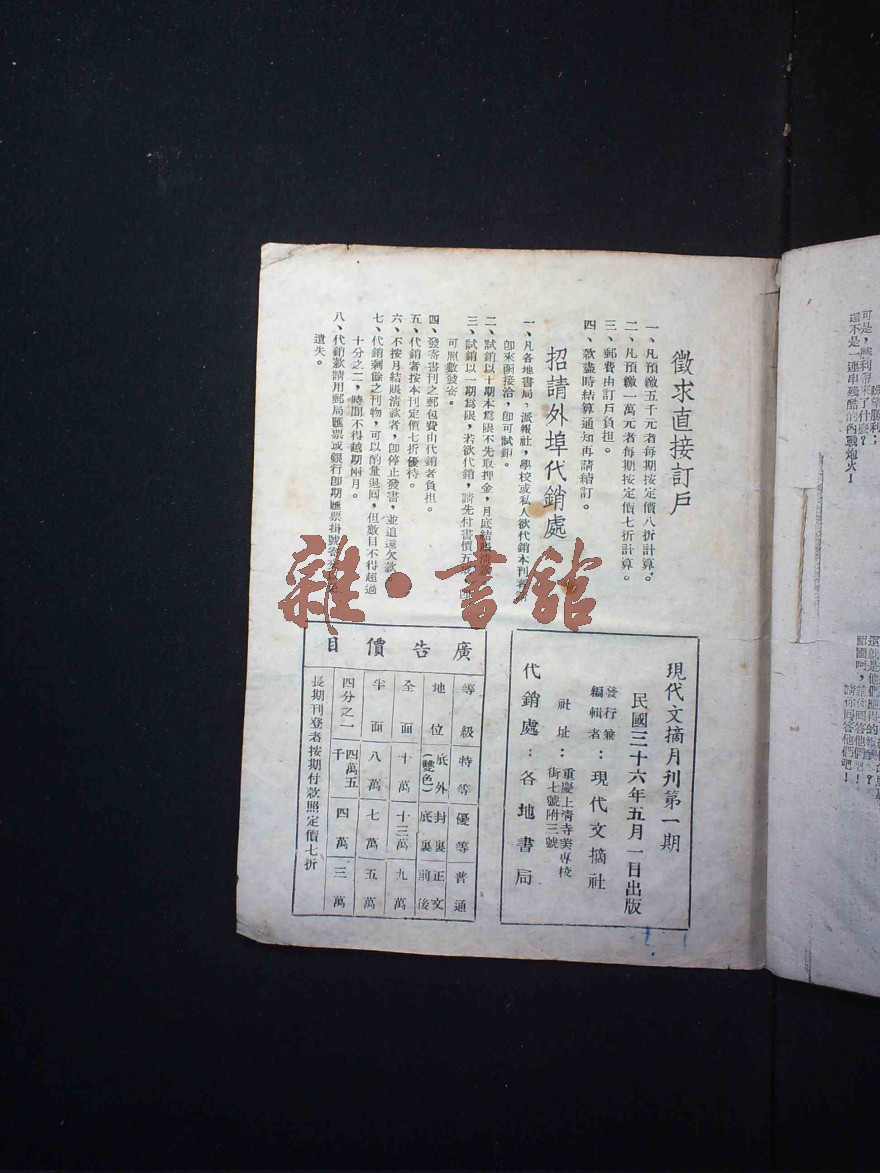 徵求直接訂戶
一、凡預繳五千元者每期按定價八折計算。
二、凡預繳一萬元者每期按定價七折計算。
三、郵費由訂戶負担。
四、款盡時結算通知再請續訂。
招請外埠代銷處
一、凡各地書局，派報社，學校或私人欲代銷本刊者
卽來函接洽，卽可試銷。
二、試銷以十期本爲限不先取押金，月底結
三、試銷以一期爲限，若欲代銷，請先付書價五
可照數發寄。
四、發寄書刊之郵包費由代銷者負担。
五、代銷者按本刊定價七折優待。
六、不按月結賬清款者，卽停止發書，並追還欠款
七、代銷剩餘之刊物，可以酌量退囘，但數目不得超過
十分之二，時間不得越期兩月。
八、代銷款請用郵局匯票或銀行卽期匯票掛號寄
遺失。
雜·書館
現代文摘月刊第一期
民國三十六年五月一日出版
發行兼
編輯者：現代文摘社
社址：重慶上清寺美專校
街七號附三號
代銷處：各地書局
廣告價目
等級 特等 優等 普通
地位 底外(雙色) 封裏底裏 正文前後
全面 十萬 十三萬 九萬
半面 八萬 七萬 五萬
四分之一 四萬五千 四萬 三萬
長期刊登者按期付款照定價七折
勝利；
可是，勝利帶來了什麼？
還不是一連串殘酷的內戰炮火！